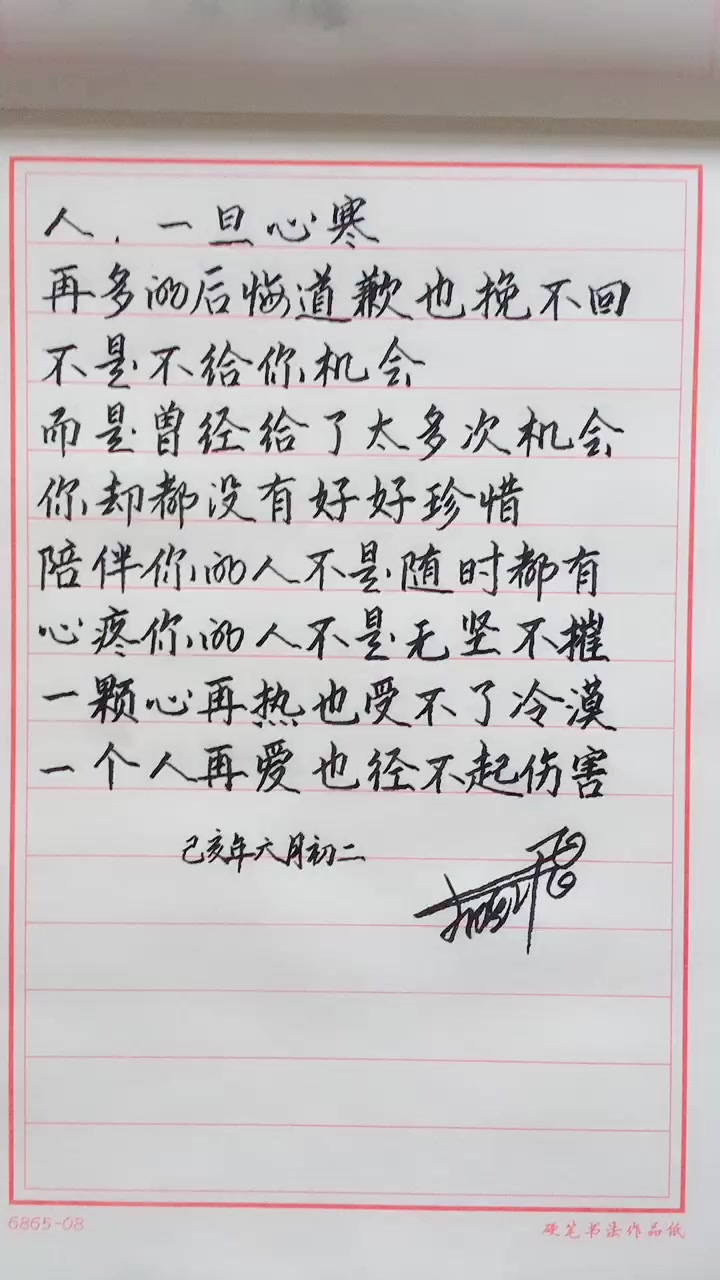 人，一旦心寒
再多的后悔道歉也挽不回
不是不给你机会
而是曾经给了太多次机会
你却都没有好好珍惜
陪伴你的人不是随时都有
心疼你的人不是无坚不摧
一颗心再热也受不了冷漠
一个人再爱也径不起伤害
己亥年六月初二
6865-08
硬笔书法作品纸